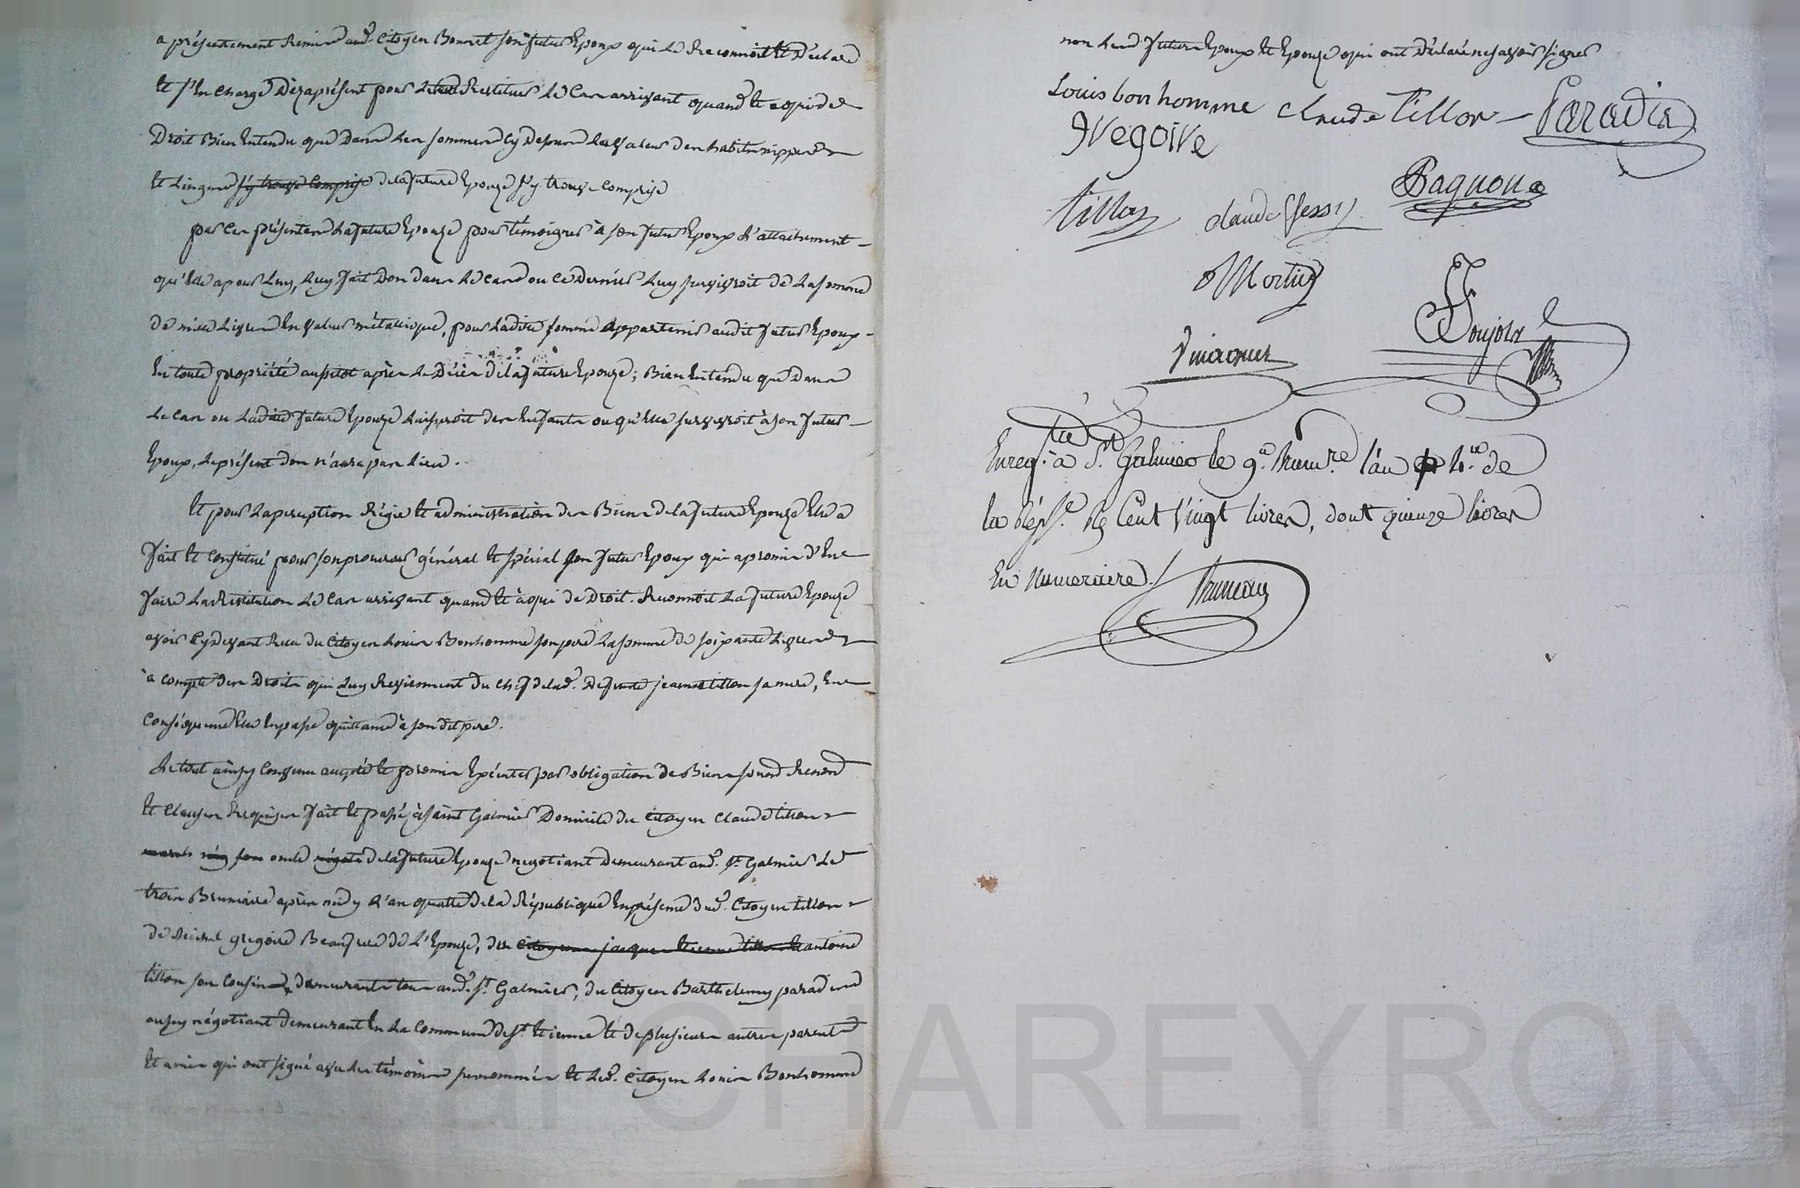 a présentement Remis aud. Citoyen Bonnet son futur Epoux qui le Reconnoit et Déclare
et s'en charge Dèzaprésent pour Restituer Le Cas arrivant quand et aquide
Droit Bien Entendu que Dans les sommes cy Dessus la valeur des habits nippes
et Linges s'y trouve Comprise de la future Epouze s'y trouve comprise
par Ces présentes La future Epouze pour témoigner à son futur Epoux L'attachement
qu'elle a pour Luy, Luy fait Don dans Le cas ou ce dernier Luy survivroit de La somme
de mille Livres En valeur métallique, pour Ladite somme appartenir audit futur Epoux
En toute propriété aussitot après Le Décès de la future Epouze; Bien Entendu que Dans
Le cas ou Ladite future Epouze Laisseroit des Enfants ou qu'elle survivroit à son futur
Epoux, Le présent don n'aura pas Lieu.
Et pour La perception Régie et administration des Biens de la future Epouze Elle a
fait et Constitué pour son procureur général et spécial son futur Epoux qui a promis d'En
faire La Restitution Le Cas arrivant quand et à qui de Droit. Reconnoit La future Epouze
avoir Cy devant Reçu du Citoyen Louis Bonhomme son pere La somme de soixante Livres
à compte des Droits qui Luy Reviennent du Chef de lad. Defunte jeanne tillon sa mere, En
Conséquence Elle En passe quittance à son dit pere.
Le tout ainsy Convenu accepté et promis Exécuter par obligation de Biens
et Clauses Requises fait et passé à Saint Galmier Domicile du Citoyen Claude tillon
oncle de la future Epouze negotiant demeurant aud. St. Galmier Le
trois Brumaire après midy L'an quatre de la République En présence dud. Citoyen tillon
de gregoire Beaufrere de L'Epouze, des Citoyens jacque Etienne tillon et antoine
tillon son Cousin, demeurants tous aud. St. Galmier, du Citoyen Barthelemy paradis
aussy négotiant demeurant En La Commune de St. Etienne et de plusieurs autres parents
et amis qui ont signé avec Les témoins susnommés et Led. Citoyen Louis Bonhomme
non Lesd. futurs Epoux et Epouze qui ont Déclaré ne savoir signer
Louis bonhomme claude Tillon Paradis
gregoire
tillon claude Bagnon
Mortier
Vincent
Enregtré à St. Galmier le 9e. Brumre. l'an 4me. de
la Répe. Re Cent Vingt livres, dont quinze livres
En Numeraire.
CHAREYRON